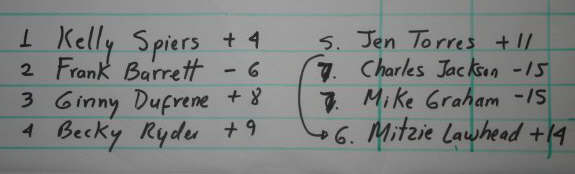 1 Kelly Spiers + 4
2 Frank Barrett - 6
3 Ginny Dufrene + 8
4 Becky Ryder + 9
5. Jen Torres + 11
7. Charles Jackson - 15
7. Mike Graham - 15
6. Mitzie Lawhead + 14